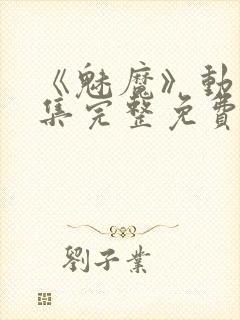 《魅魔》動
集完整免費
劉子業